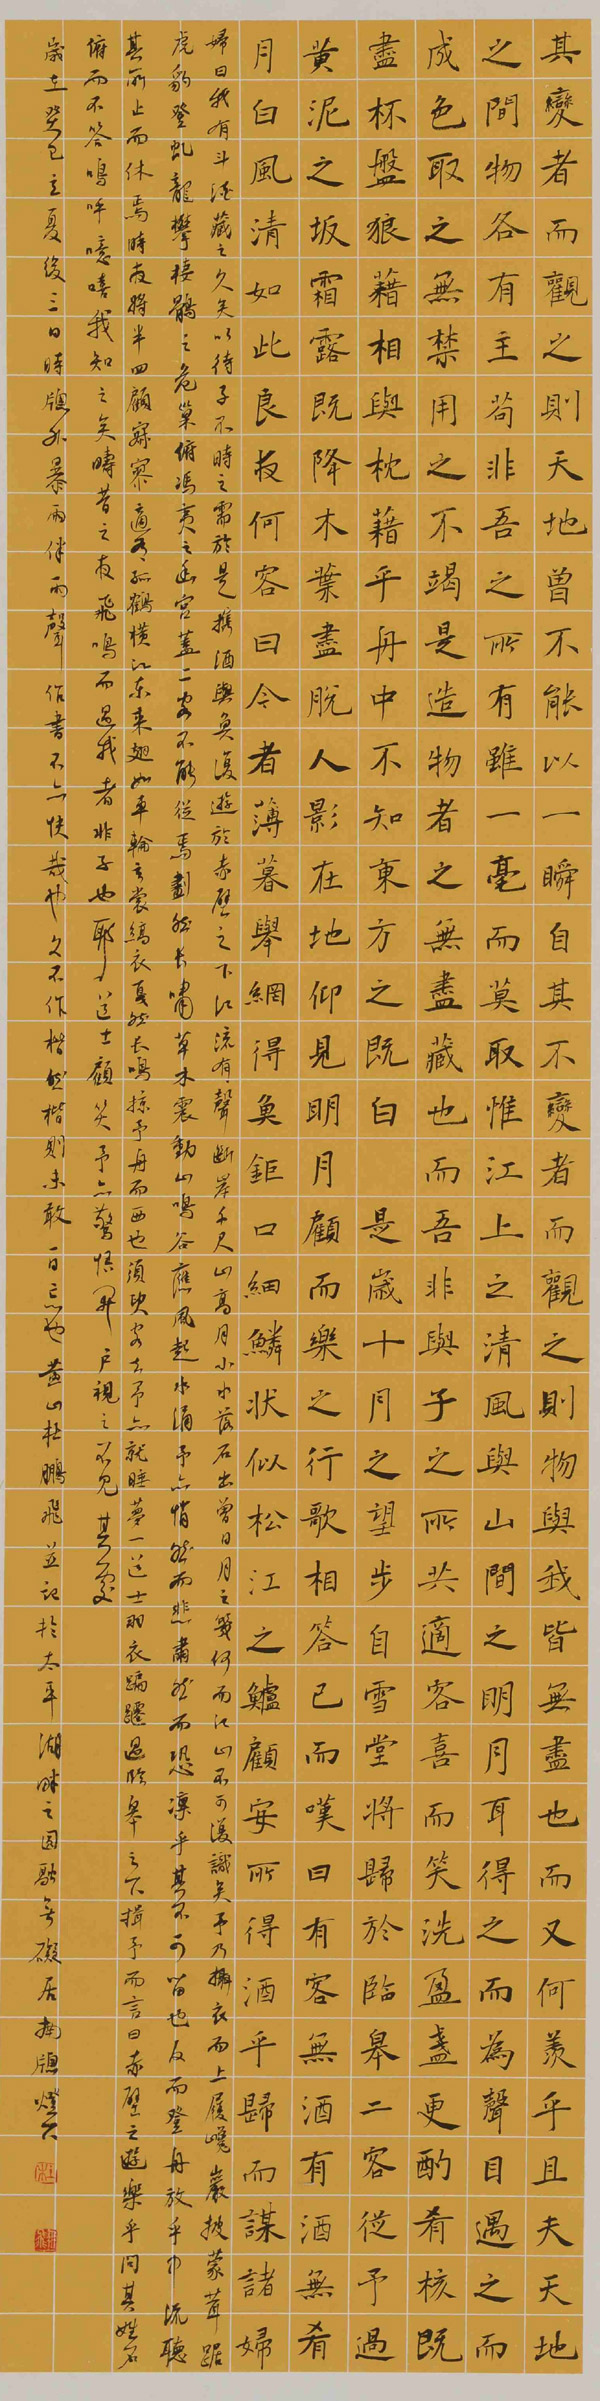 其變者而觀之則天地曾不能以一瞬自其不變者而觀之則物與我皆無盡也而又何羨乎且夫天地
之間物各有主苟非吾之所有雖一毫而莫取惟江上之清風與山間之明月耳得之而為聲目遇之而
成色取之無禁用之不竭是造物者之無盡藏也而吾非與子之所共適客喜而笑洗盈盞更酌肴核既
盡杯盤狼藉相與枕藉乎舟中不知東方之既白是歲十月之望步自雪堂將歸於臨皋二客從予過
黃泥之坂霜露既降木葉盡脫人影在地仰見明月顧而樂之行歌相答已而嘆曰有客無酒有酒無肴
月白風清如此良夜何客曰今者薄暮舉網得魚鉅口細鱗狀似松江之鱸顧安所得酒乎歸而謀諸婦
婦曰我有斗酒藏之久矣以待子不時之需於是攜酒與魚復遊於赤壁之下江流有聲斷岸千尺山高月小水落石出曾日月之幾何而江山不可復識矣予乃攝衣而上履巉巖披蒙茸踞
虎豹登虬龍攀棲鶻之危巢俯馮夷之幽宮蓋二客不能從焉劃然長嘯草木震動山鳴谷應風起水涌予亦悄然而悲肅然而恐凜乎其不可留也反而登舟放乎中流聽
其所止而休焉時夜將半四顧寂寥適有孤鶴橫江東來翅如車輪玄裳縞衣戛然長鳴掠予舟而西也須臾客去予亦就睡夢一道士羽衣蹁躚過臨皋之下揖予而言曰赤壁之遊樂乎問其姓名
俯而不答嗚呼噫嘻我知之矣疇昔之夜飛鳴而過我者非子也耶道士顧笑予亦驚悟開戶視之不見其處
歲在癸巳立夏後三日時窗外暴雨伴雨聲作書不亦快哉也久不作楷然楷則未敢一日忘也黃山杜鵬飛並記於太平湖畔之圓融無礙居南窗燈下